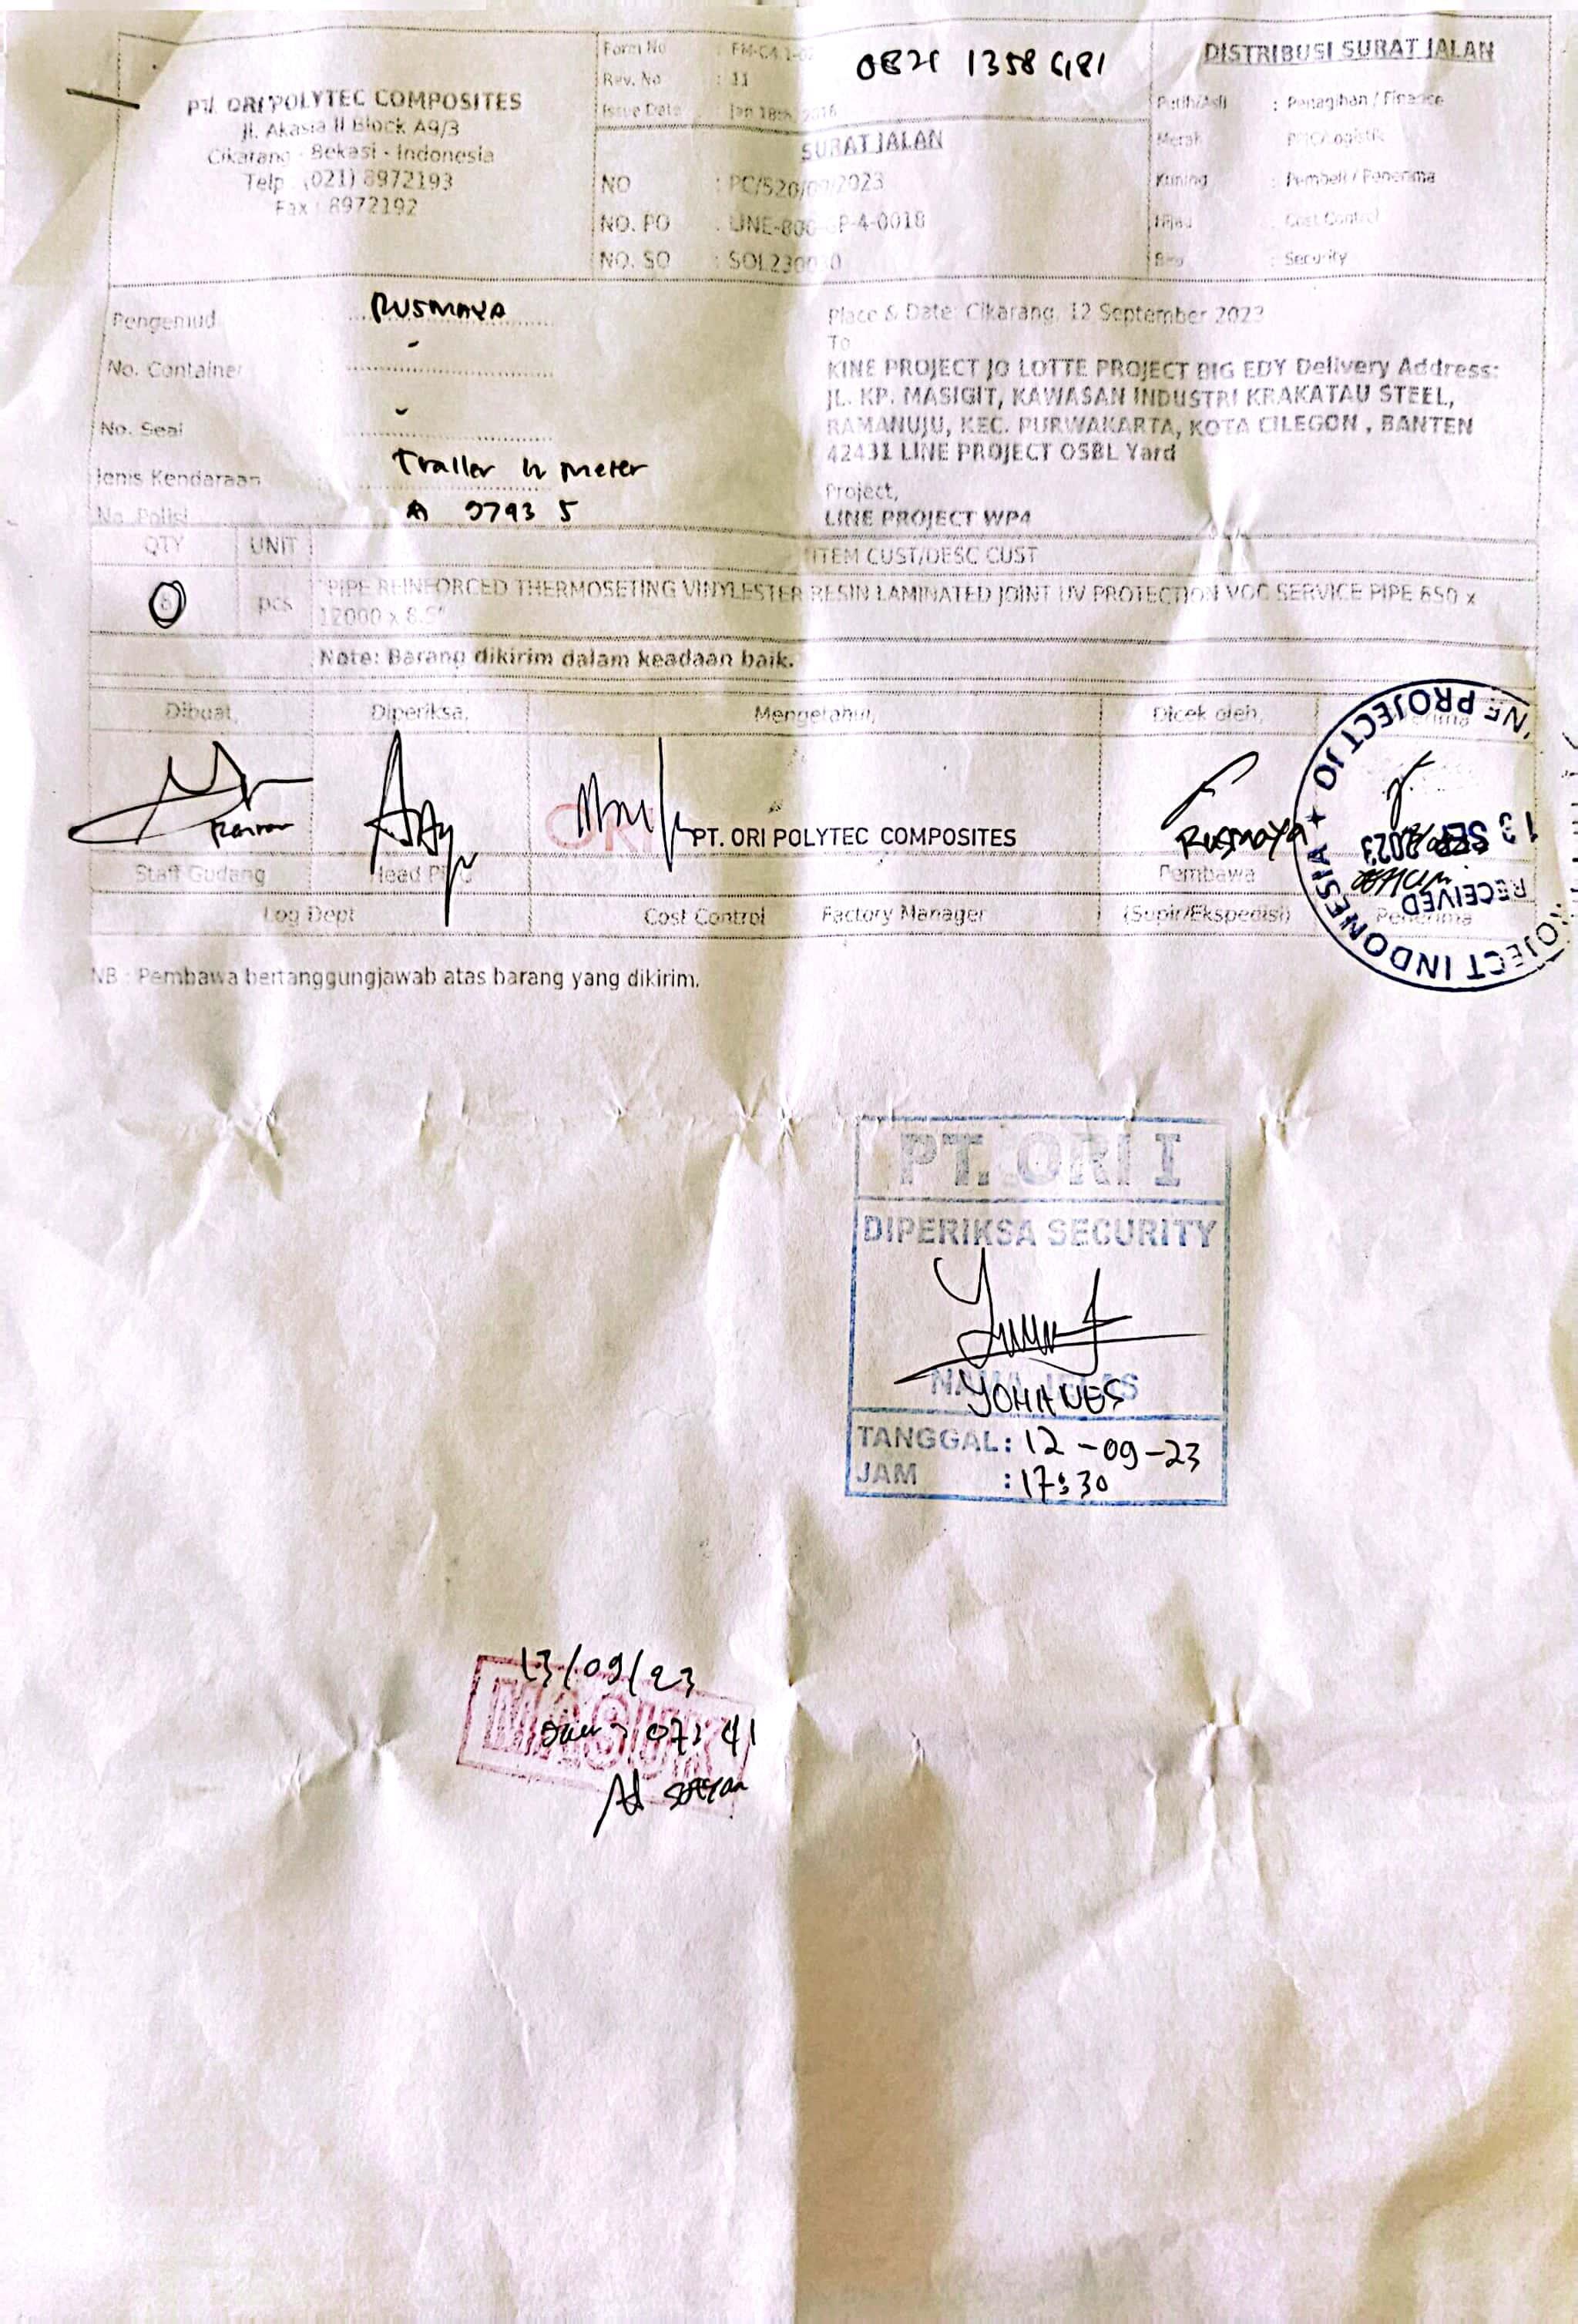 PT. ORI POLYTEC COMPOSITES
Jl. Akasia II Block A9/3
Cikarang - Bekasi - Indonesia
Telp : (021) 8972193
Fax : 8972192
Form No : FM-C4.1-0
Rev. No : 11
Issue Date : Jan 18th, 2016
SURAT JALAN
NO : PC/520/ 2023
NO. PO : LINE-800- P-4-0018
NO. SO : SOL2300 0
DISTRIBUSI SURAT JALAN
Putih/Asli : Penagihan / Finance
Merah
Kuning : Pembeli / Penerima
Hijau : Cost Control
: Security
Pengemudi RUSMAYA
No. Container -
No. Seal -
Jenis Kendaraan Trailer meter
No. Polisi A 9793 S
Place & Date: Cikarang, 12 September 2023
To
KINE PROJECT JO LOTTE PROJECT BIG EDY Delivery Address:
JL. KP. MASIGIT, KAWASAN INDUSTRI KRAKATAU STEEL,
RAMANUJU, KEC. PURWAKARTA, KOTA CILEGON , BANTEN
42431 LINE PROJECT OSBL Yard
Project,
LINE PROJECT WP4
QTY UNIT ITEM CUST/DESC CUST
pcs PIPE REINFORCED THERMOSETING VINYLESTER RESIN LAMINATED JOINT UV PROTECTION VOC SERVICE PIPE 650 x
12000 x
Note: Barang dikirim dalam keadaan baik.
Dibuat, Diperiksa, Mengetahui, Dicek oleh,
ORI PT. ORI POLYTEC COMPOSITES
Rusmaya
Staff Gudang Head Pembawa
Log Dept Cost Control Factory Manager (Supir/Ekspedisi) Penerima
NE PROJECT JO
13 SEP 2023
RECEIVED
OJECT INDONESIA
NB : Pembawa bertanggungjawab atas barang yang dikirim.
PT. ORI I
DIPERIKSA SECURITY
YOHANES
TANGGAL: 12-09-23
JAM : 17:30
13/09/23
MASUK
07:41